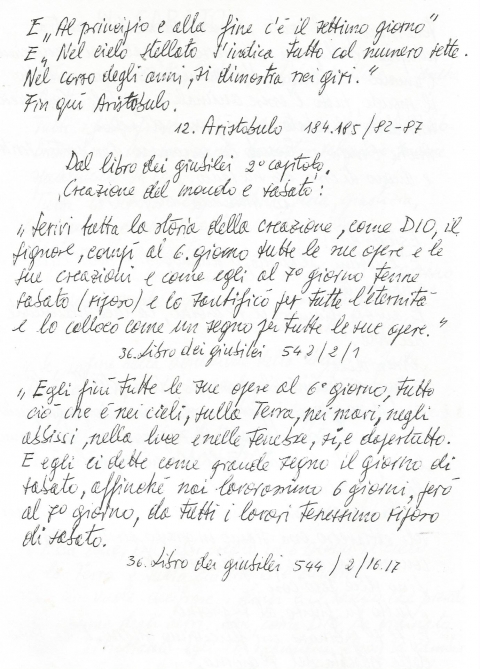 E „Al principio e alla fine c'é il settimo giorno"
E „Nel cielo stellato s'indica tutto col numero sette.
Nel corso degli anni, si dimostra nei giri."
Fin qui Aristobulo.
12. Aristobulo 184.185/82-87
Dal libro dei giubilei 2º capitolo,
Creazione del mondo e sabato:
„Scrivi tutta la storia della creazione, come DIO, il
signore, compì al 6. giorno tutte le sue opere e le
sue creazioni e come egli al 7º giorno tenne
sabato (riposo) e lo santificó per tutte l'eternità
e lo collocó come un segno per tutte le sue opere."
36. Libro dei giubilei 542/2/1
„Egli finì tutte le sue opere al 6º giorno, tutto
ció che é nei cieli, sulla Terra, nei mari, negli
abissi, nella luce e nelle Tenebre, sì, e dapertutto.
E egli ci dette come grande segno il giorno di
sabato, affinché noi lavorassimo 6 giorni, peró
al 7º giorno, da tutti i lavori tenessimo riposo
di sabato.
36. Libro dei giubilei 544/2/16.17